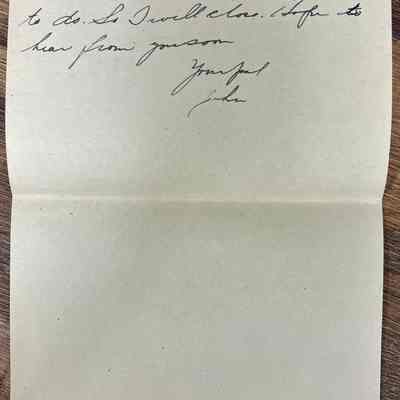 to do. So I will close. Hope to
hear from you soon
Your pal
John